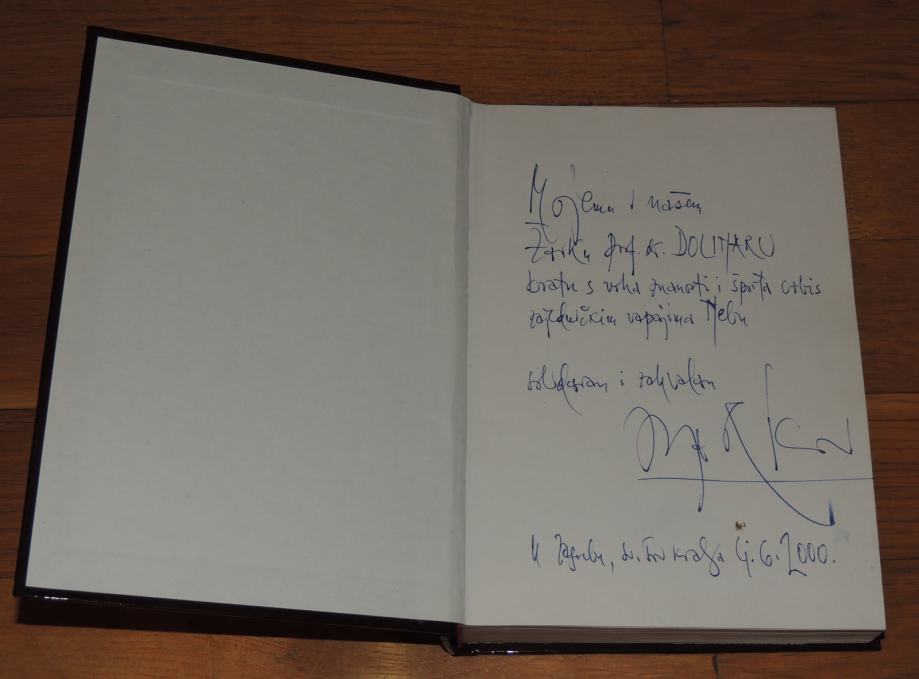 Mojemu i našem
Žarku prof. dr. DOLINARU
bratu s vrha znanosti i športa orbis
zajedničkim vapajima Nebu
solidaran i zahvalan
U Zagrebu, 4. 6. 2000.